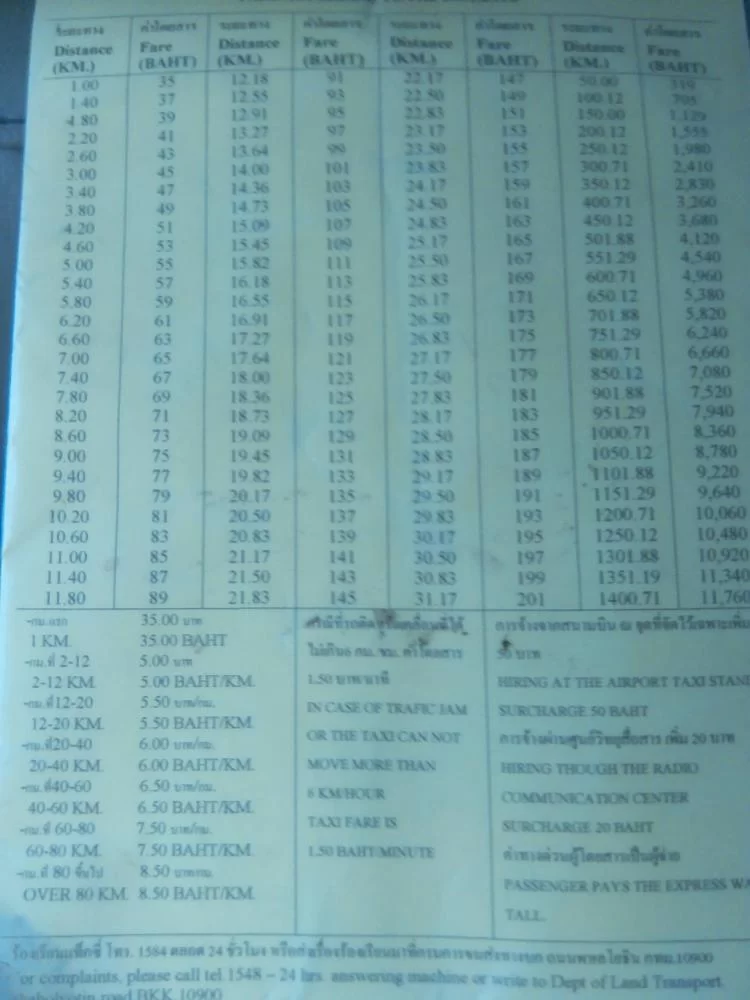 ระยะทาง ค่าโดยสาร ระยะทาง ค่าโดยสาร ระยะทาง ค่าโดยสาร ระยะทาง ค่าโดยสาร
Distance Fare Distance Fare Distance Fare Distance Fare
(KM.) (BAHT) (KM.) (BAHT) (KM.) (BAHT) (KM.) (BAHT)
1.00 35 12.18 91 22.17 147 50.00 319
1.40 37 12.55 93 22.50 149 100.12 705
4.80 39 12.91 95 22.83 151 150.00 1,129
2.20 41 13.27 97 23.17 153 200.12 1,555
2.60 43 13.64 99 23.50 155 250.12 1,980
3.00 45 14.00 101 23.83 157 300.71 2,410
3.40 47 14.36 103 24.17 159 350.12 2,830
3.80 49 14.73 105 24.50 161 400.71 3,260
4.20 51 15.09 107 24.83 163 450.12 3,680
4.60 53 15.45 109 25.17 165 501.88 4,120
5.00 55 15.82 111 25.50 167 551.29 4,540
5.40 57 16.18 113 25.83 169 600.71 4,960
5.80 59 16.55 115 26.17 171 650.12 5,380
6.20 61 16.91 117 26.50 173 701.88 5,820
6.60 63 17.27 119 26.83 175 751.29 6,240
7.00 65 17.64 121 27.17 177 800.71 6,660
7.40 67 18.00 123 27.50 179 850.12 7,080
7.80 69 18.36 125 27.83 181 901.88 7,520
8.20 71 18.73 127 28.17 183 951.29 7,940
8.60 73 19.09 129 28.50 185 1000.71 8,360
9.00 75 19.45 131 28.83 187 1050.12 8,780
9.40 77 19.82 133 29.17 189 1101.88 9,220
9.80 79 20.17 135 29.50 191 1151.29 9,640
10.20 81 20.50 137 29.83 193 1200.71 10,060
10.60 83 20.83 139 30.17 195 1250.12 10,480
11.00 85 21.17 141 30.50 197 1301.88 10,920
11.40 87 21.50 143 30.83 199 1351.19 11,340
11.80 89 21.83 145 31.17 201 1400.71 11,760
-กม.แรก 35.00 บาท
1 KM. 35.00 BAHT
-กม.ที่ 2-12 5.00 บาท
2-12 KM. 5.00 BAHT/KM.
-กม.ที่12-20 5.50 บาท/กม.
12-20 KM. 5.50 BAHT/KM.
-กม.ที่20-40 6.00 บาท/กม.
20-40 KM. 6.00 BAHT/KM.
-กม.ที่40-60 6.50 บาท/กม.
40-60 KM. 6.50 BAHT/KM.
-กม.ที่ 60-80 7.50 บาท/กม.
60-80 KM. 7.50 BAHT/KM.
-กม.ที่ 80 ขึ้นไป 8.50 บาท/กม.
OVER 80 KM. 8.50 BAHT/KM.
กรณีที่รถติด
ไม่เกิน6 กม. ชม. ค่าโดยสาร
1.50 บาท/นาที
IN CASE OF TRAFIC JAM
OR THE TAXI CAN NOT
MOVE MORE THAN
6 KM/HOUR
TAXI FARE IS
1.50 BAHT/MINUTE
การจ้างจากสนามบิน ณ จุดที่จัดไว้เฉพาะเพิ่ม
50 บาท
HIRING AT THE AIRPORT TAXI STAN
SURCHARGE 50 BAHT
การจ้างผ่านศูนย์วิทยุสื่อสาร เพิ่ม 20 บาท
HIRING THOUGH THE RADIO
COMMUNICATION CENTER
SURCHARGE 20 BAHT
ค่าทางด่วนผู้โดยสารเป็นผู้จ่าย
PASSENGER PAYS THE EXPRESS WA
TALL.
ร้องเรียนแท็กซี่ โทร. 1584 ตลอด 24 ชั่วโมง หรือส่งเรื่องร้องเรียนมาที่กรมการขนส่งทางบก ถนนพหลโยธิน กทม.10900
or complaints, please call tel 1548 – 24 hrs. answering machine or write to Dept of Land Transport.
road BKK 10900